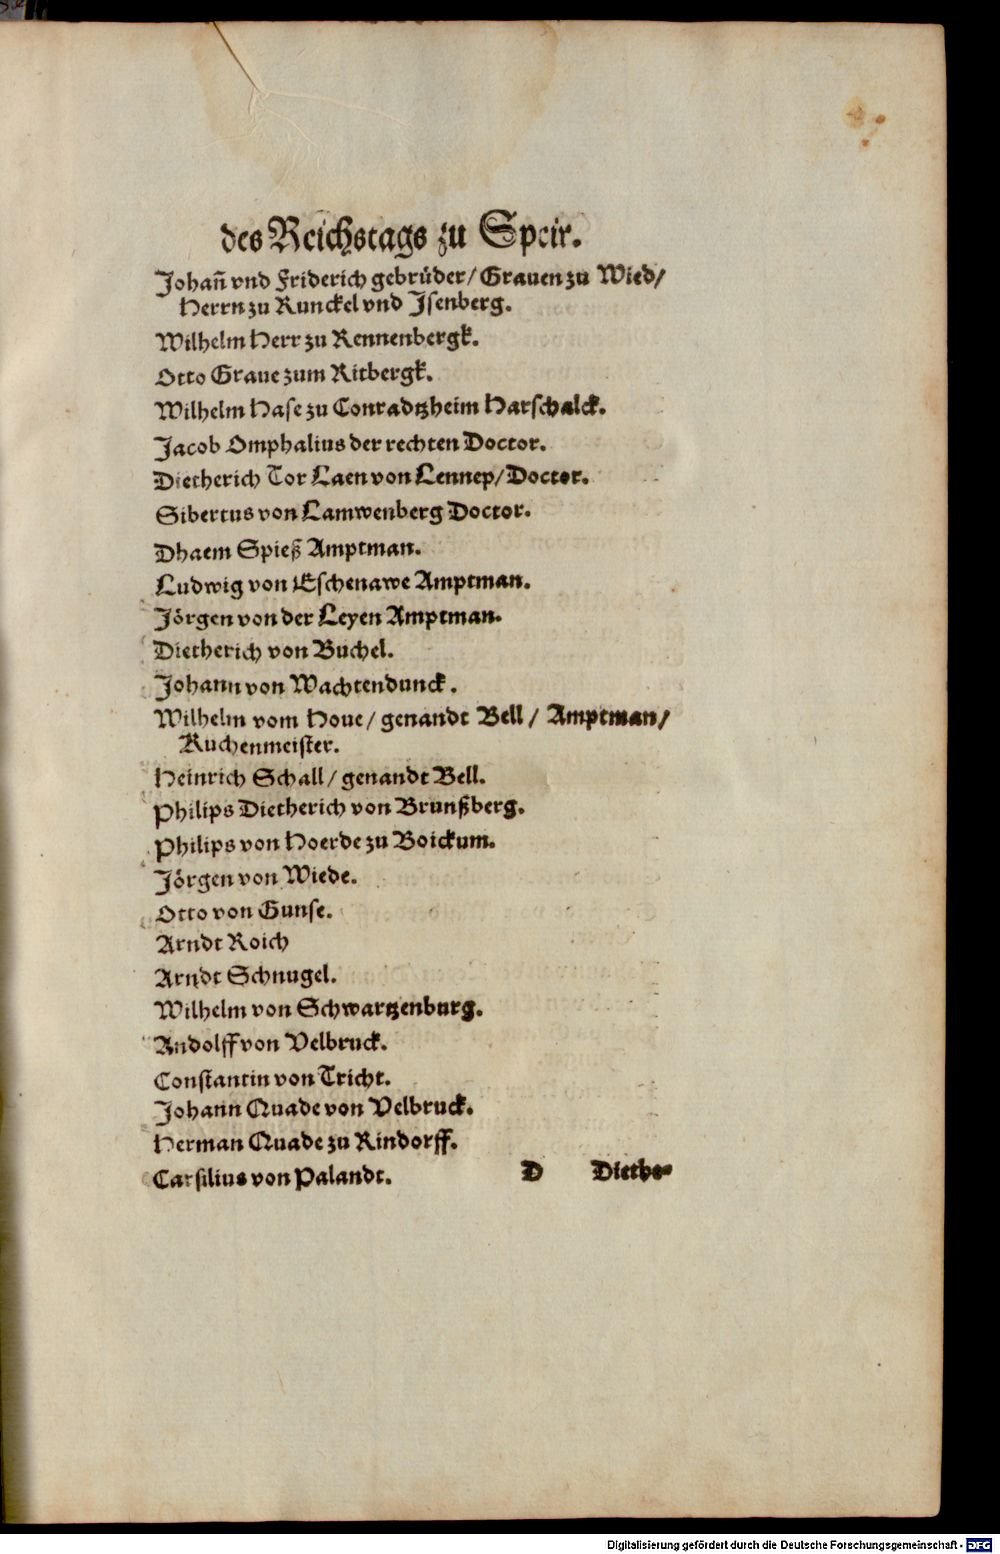 des Reichstags zu Speir.
Johan̄ vnd Friderich gebrüder/ Grauen zu Wied/
Herrn zu Runckel vnd Isenberg.
Wilhelm Herr zu Rennenbergk.
Otto Graue zum Ritbergk.
Wilhelm Hase zu Conradtzheim Harschalck.
Jacob Omphalius der rechten Doctor.
Dietherich Tor Laen von Lennep/ Doctor.
Sibertus von Lamwenberg Doctor.
Dhaem Spieß Amptman.
Ludwig von Eschenawe Amptman.
Jörgen von der Leyen Amptman.
Dietherich von Buchel.
Johann von Wachtendunck.
Wilhelm vom Houe/ genandt Bell/ Amptman/
Kuchenmeister.
Heinrich Schall/ genandt Bell.
Philips Dietherich von Brunßberg.
Philips von Hoerde zu Boickum.
Jörgen von Wiede.
Otto von Gunse.
Arndt Roich
Arndt Schnugel.
Wilhelm von Schwartzenburg.
Andolff von Velbruck.
Constantin von Tricht.
Johann Quade von Velbruck.
Herman Quade zu Rindorff.
Carsilius von Palandt. D Diethe-
Digitalisierung gefördert durch die Deutsche Forschungsgemeinschaft - DFG